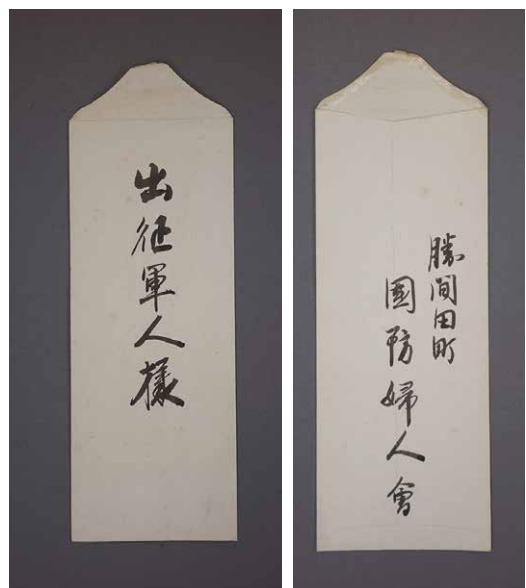 出征軍人様
勝間田町
國防婦人會